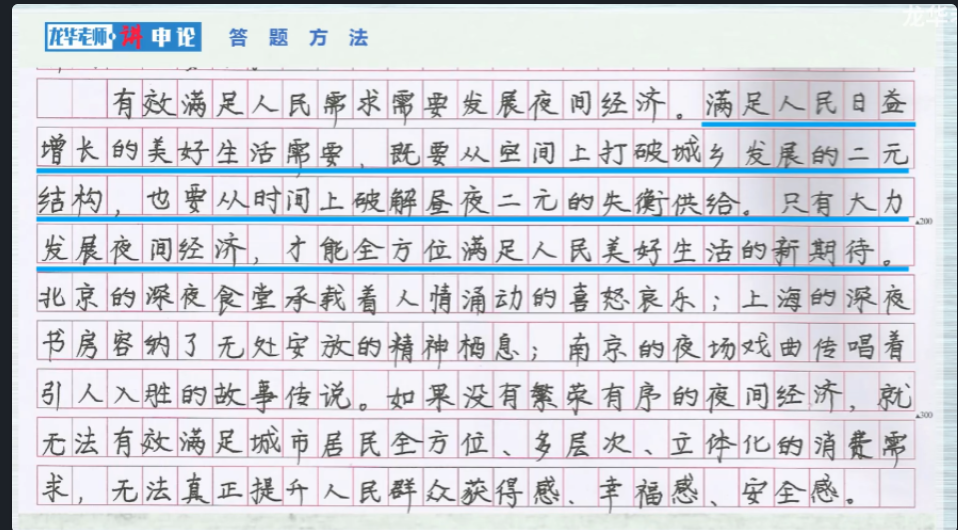 龙华
龙华老师·讲申论 答题方法
有效满足人民需求需要发展夜间经济。满足人民日益
增长的美好生活需要，既要从空间上打破城乡发展的二元
结构，也要从时间上破解昼夜二元的失衡供给。只有大力
200
发展夜间经济，才能全方位满足人民美好生活的新期待。
北京的深夜食堂承载着人情涌动的喜怒哀乐；上海的深夜
书房容纳了无处安放的精神栖息；南京的夜场戏曲传唱着
引人入胜的故事传说。如果没有繁荣有序的夜间经济，就
300
无法有效满足城市居民全方位、多层次、立体化的消费需
求，无法真正提升人民群众获得感、幸福感、安全感。